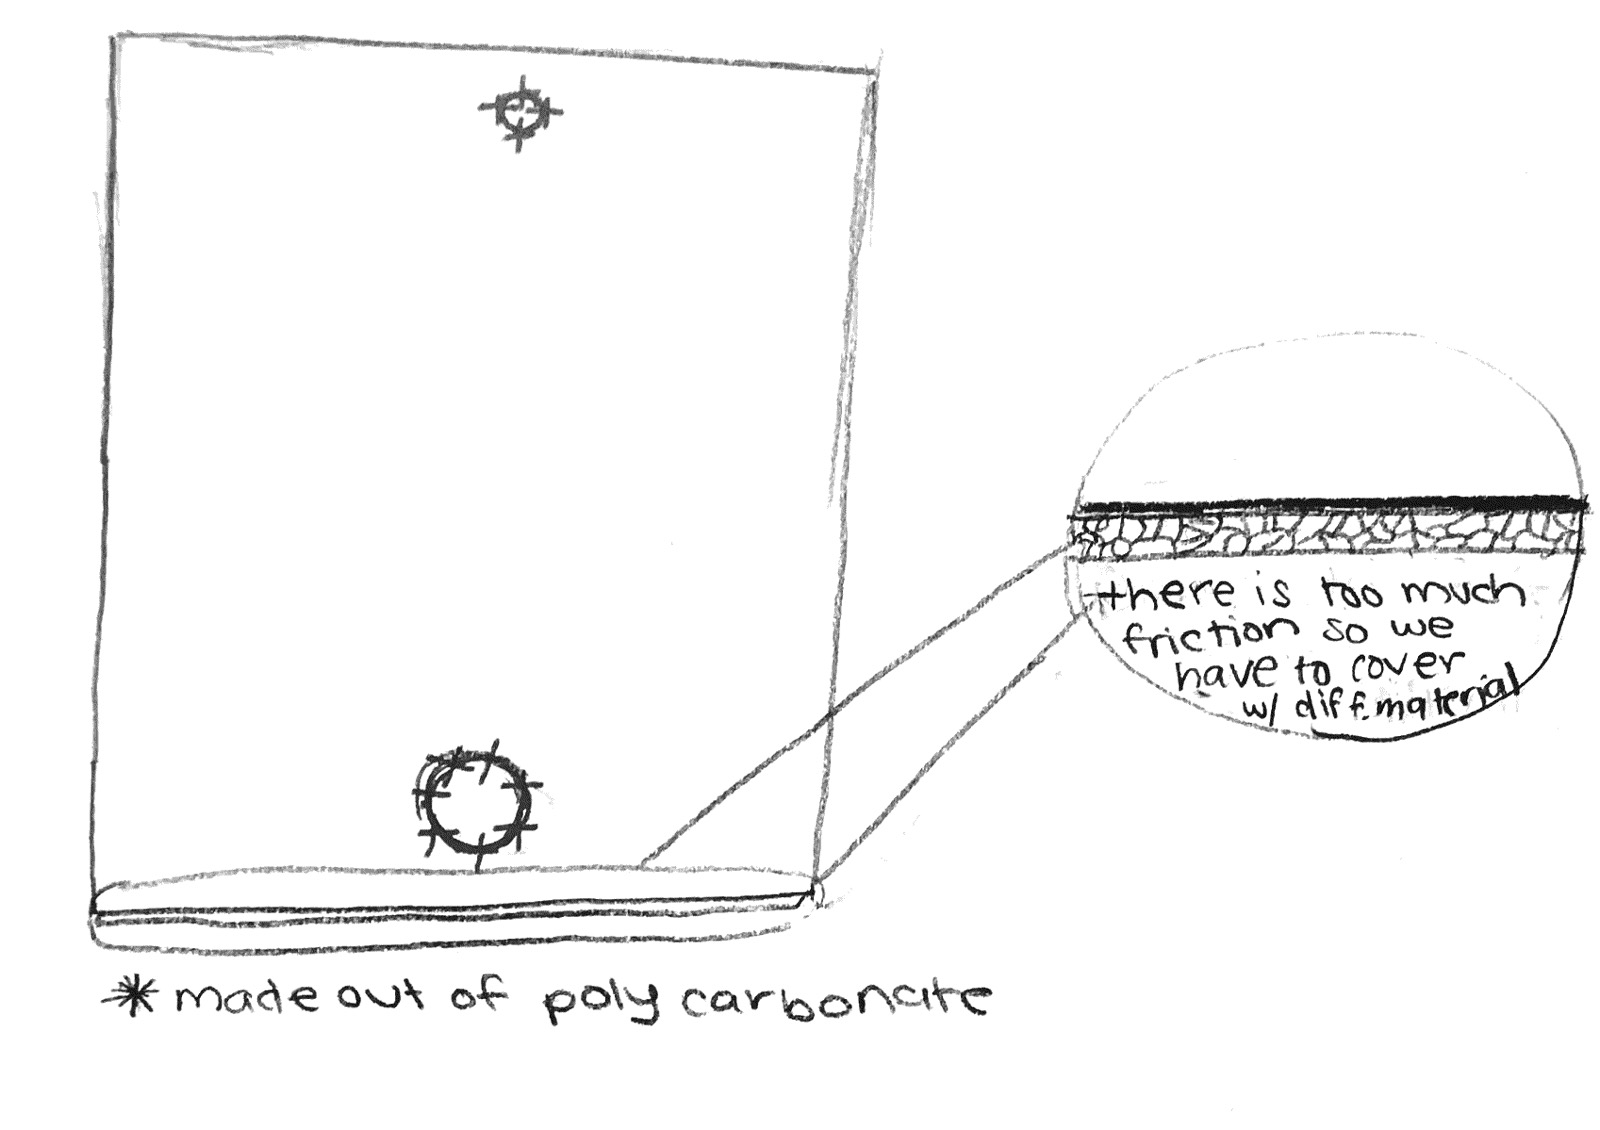 there is too much
friction so we
have to cover
w/ diff. material
* made out of poly carbonate